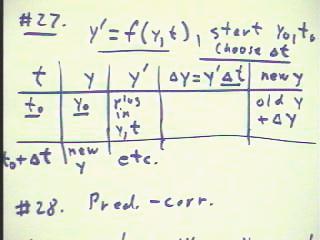 #27. y' = f(y,t), start y₀, t₀.
choose Δt
t y y' Δy = y'Δt new y
t₀ y₀ plug in y, t old y + Δy
t₀+Δt new y etc.
#28. Pred. - corr.